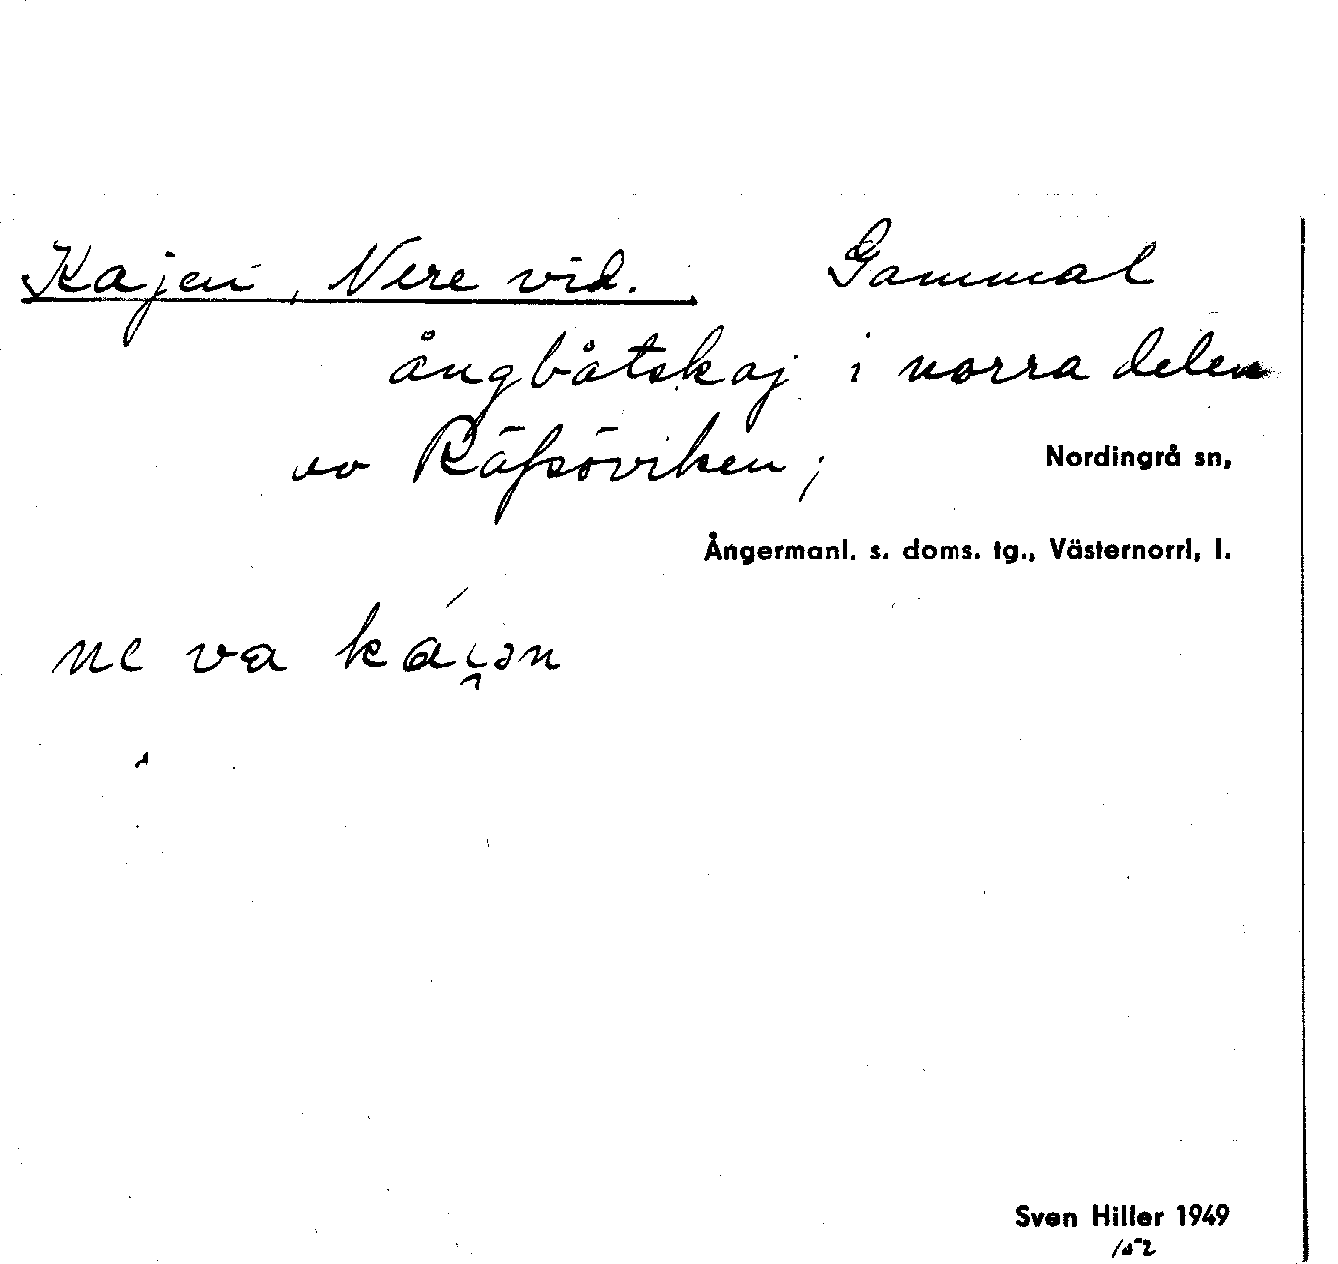 Kajen, Nere vid. Gammal
ångbåtskaj i norra delen
av Räfsöviken;
Nordingrå sn,
Ångermanl. s. doms. tg., Västernorrl, l.
ne va kái̯ən
Sven Hiller 1949
152